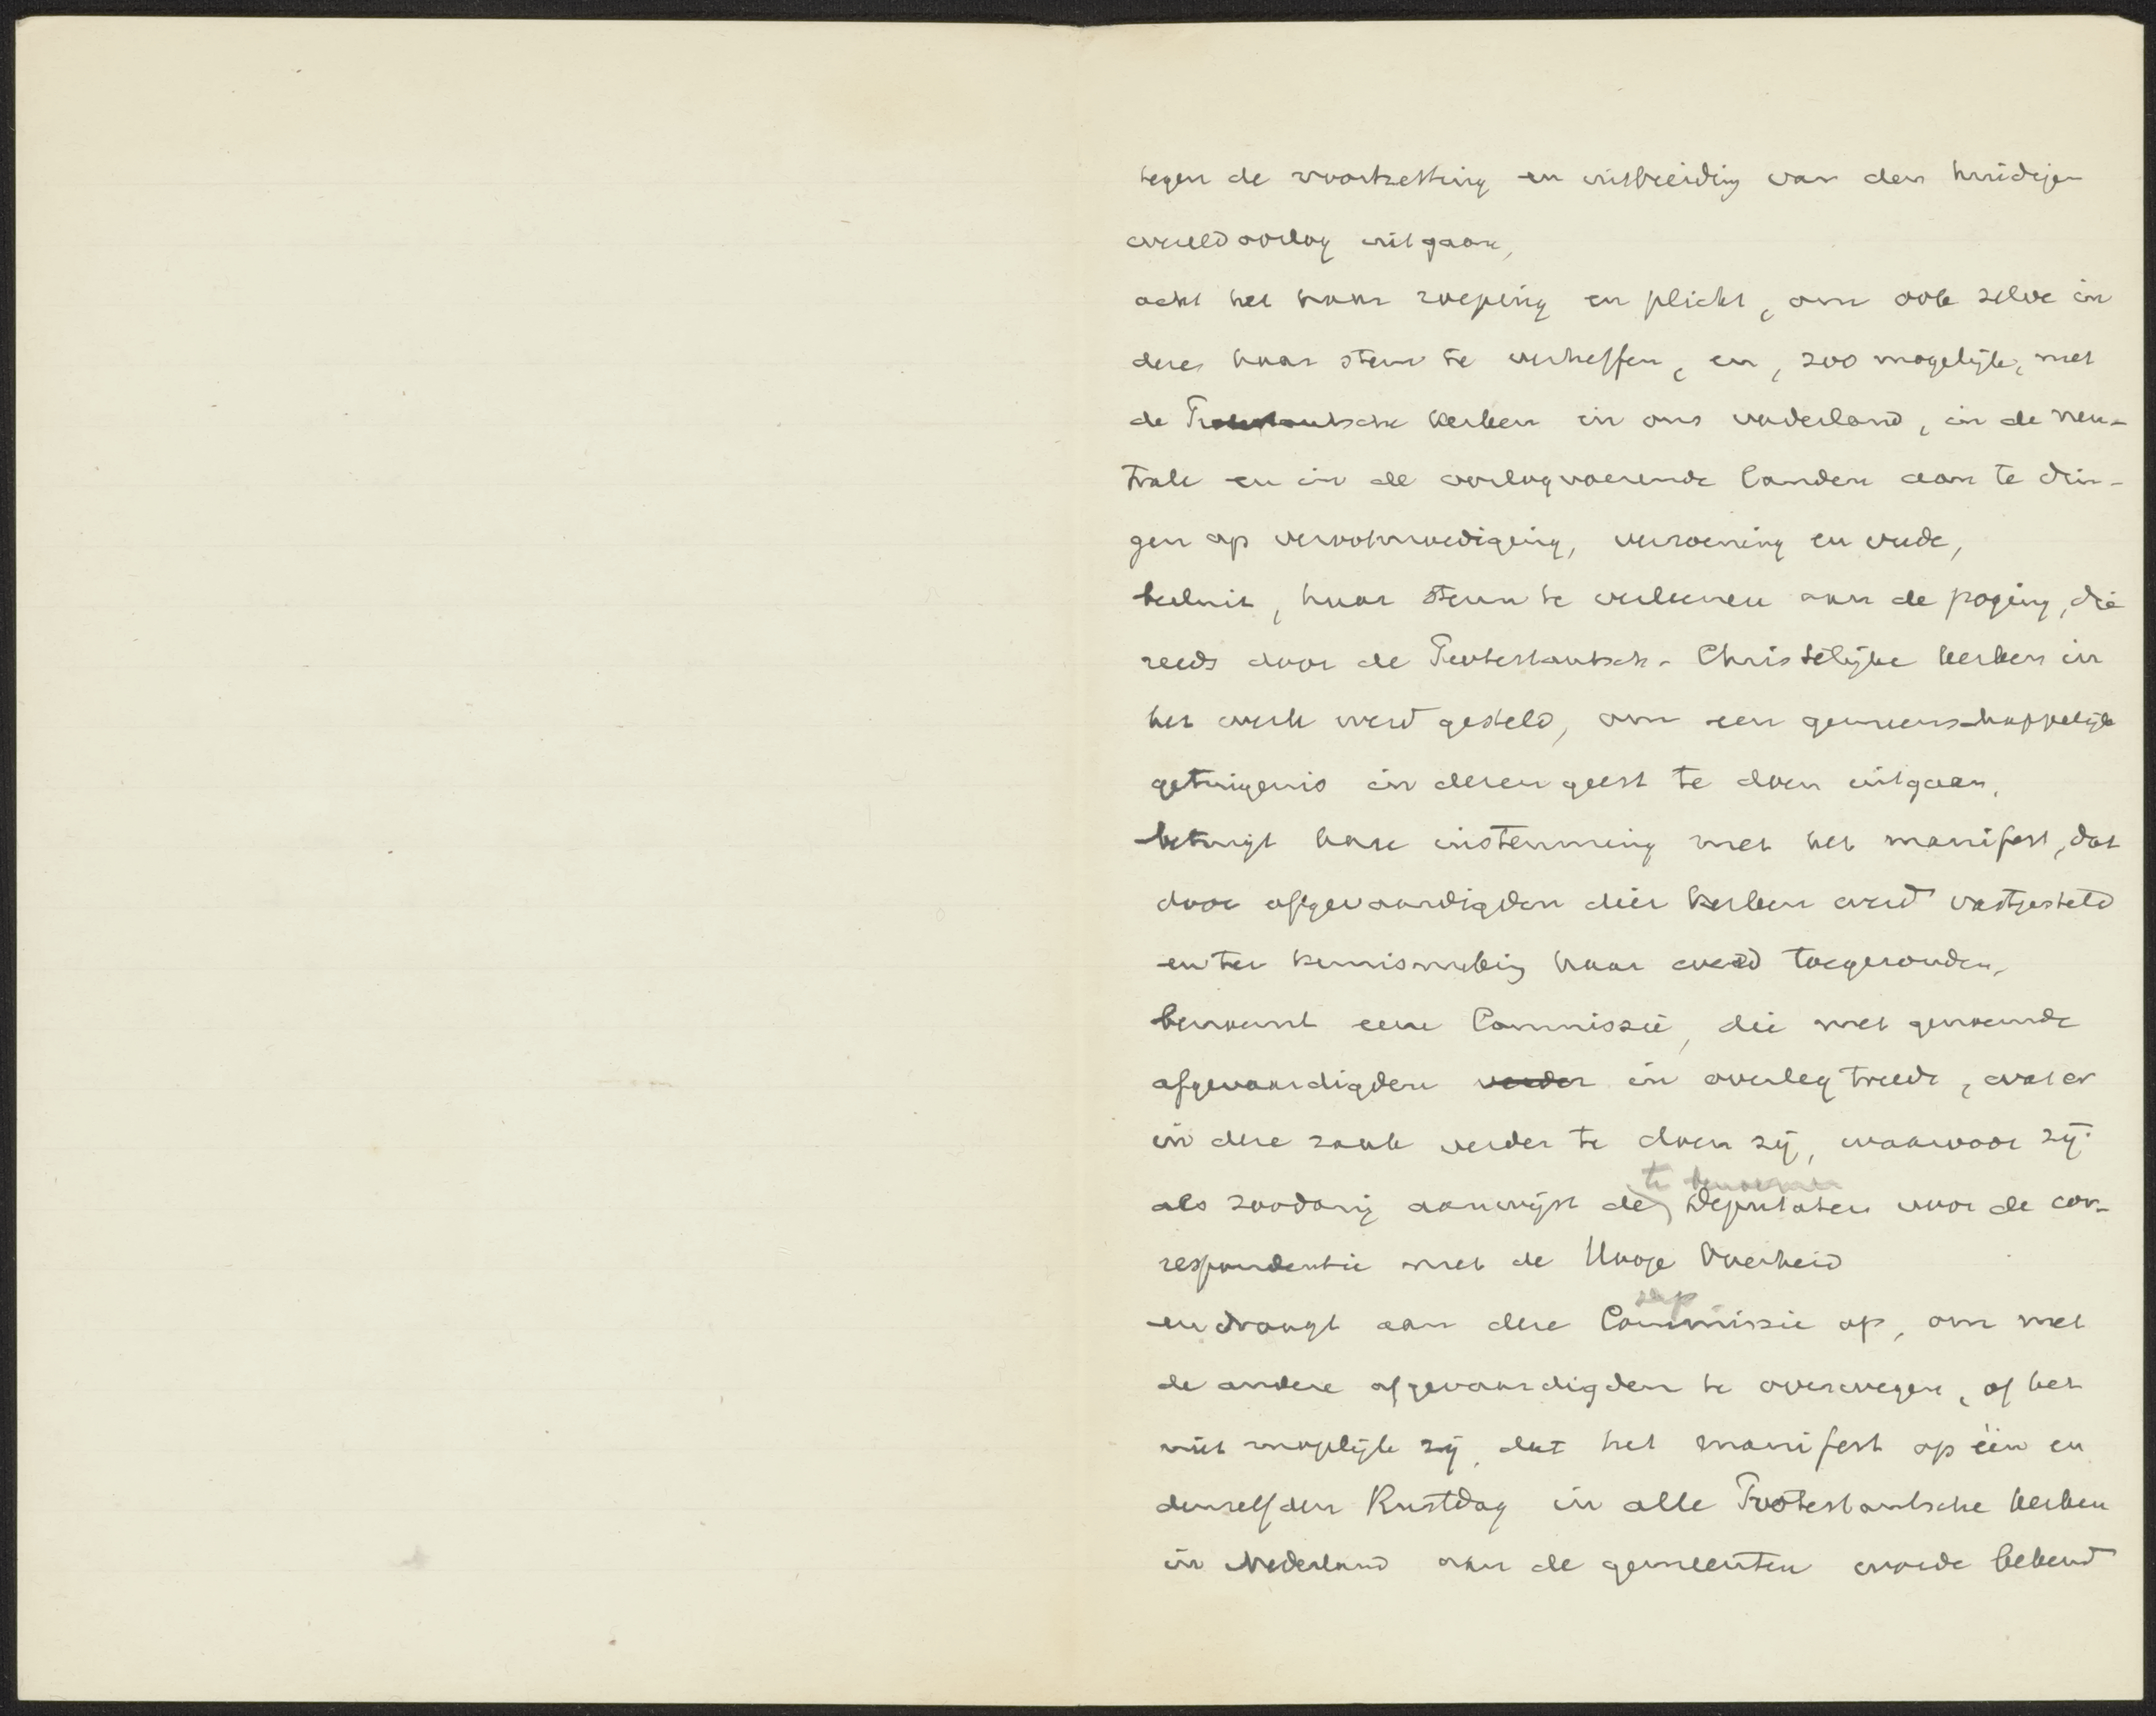 tegen de voortzetting en uitbreiding van den huidigen
wereldoorlog uitgaan,
acht het haar roeping en plicht, om ook zelve in
dezen haar stem te verheffen, en, zoo mogelijk, met
de Protestantsche kerken in ons vaderland, in de neu-
trale en in de oorlogvoerende landen aan te drin-
gen op verootmoediging, verzoening en vrede,
besluit, haar steun te verleenen aan de poging, die
reeds door de Protestantsch-Christelijke kerken in
het werk werd gesteld, om een gemeenschappelijk
getuigenis in dezen geest te doen uitgaan,
betuigt hare instemming met het manifest, dat
door afgevaardigden dier kerken werd vastgesteld
en ter kennisneming haar werd toegezonden,
benoemt eene Commissie, die met genoemde
afgevaardigden verder in overleg treede, wat er
in deze zaak verder te doen zij, waarvoor zij
te benoemen
als zoodanig aanwijst de Deputaten voor de cor-
respondentie met de Hooge Overheid
en draagt aan deze Commissie op, om met
de andere afgevaardigden te overwegen, of het
niet mogelijk zij, dat het manifest op één en
denzelfden Rustdag in alle Protestantsche kerken
in Nederland aan de gemeenten worde bekend